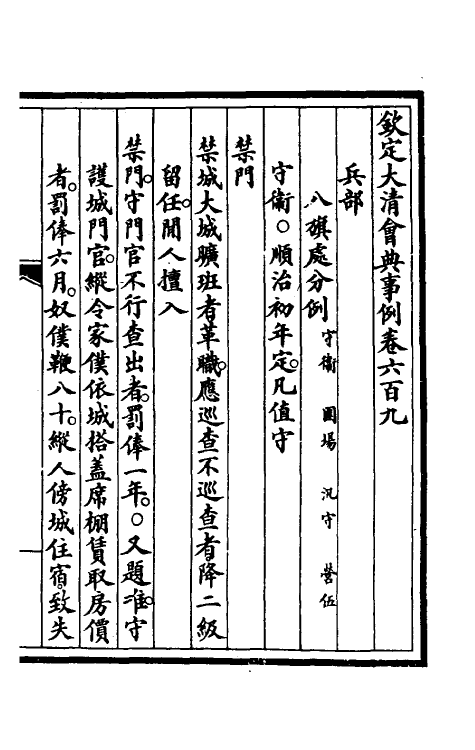 欽定大清會典事例卷六百九
兵部
八旗處分例 守衛 圍場 汛守 營伍
守衛○順治初年定。凡值守
禁門
禁城大城曠班者革職。應巡查不巡查者降二級
留任。閒人擅入
禁門。守門官不行查出者。罰俸一年。○又題准。守
護城門官。縱令家僕依城搭蓋席棚賃取房價
者。罰俸六月。奴僕鞭八十。縱人傍城住宿。致失